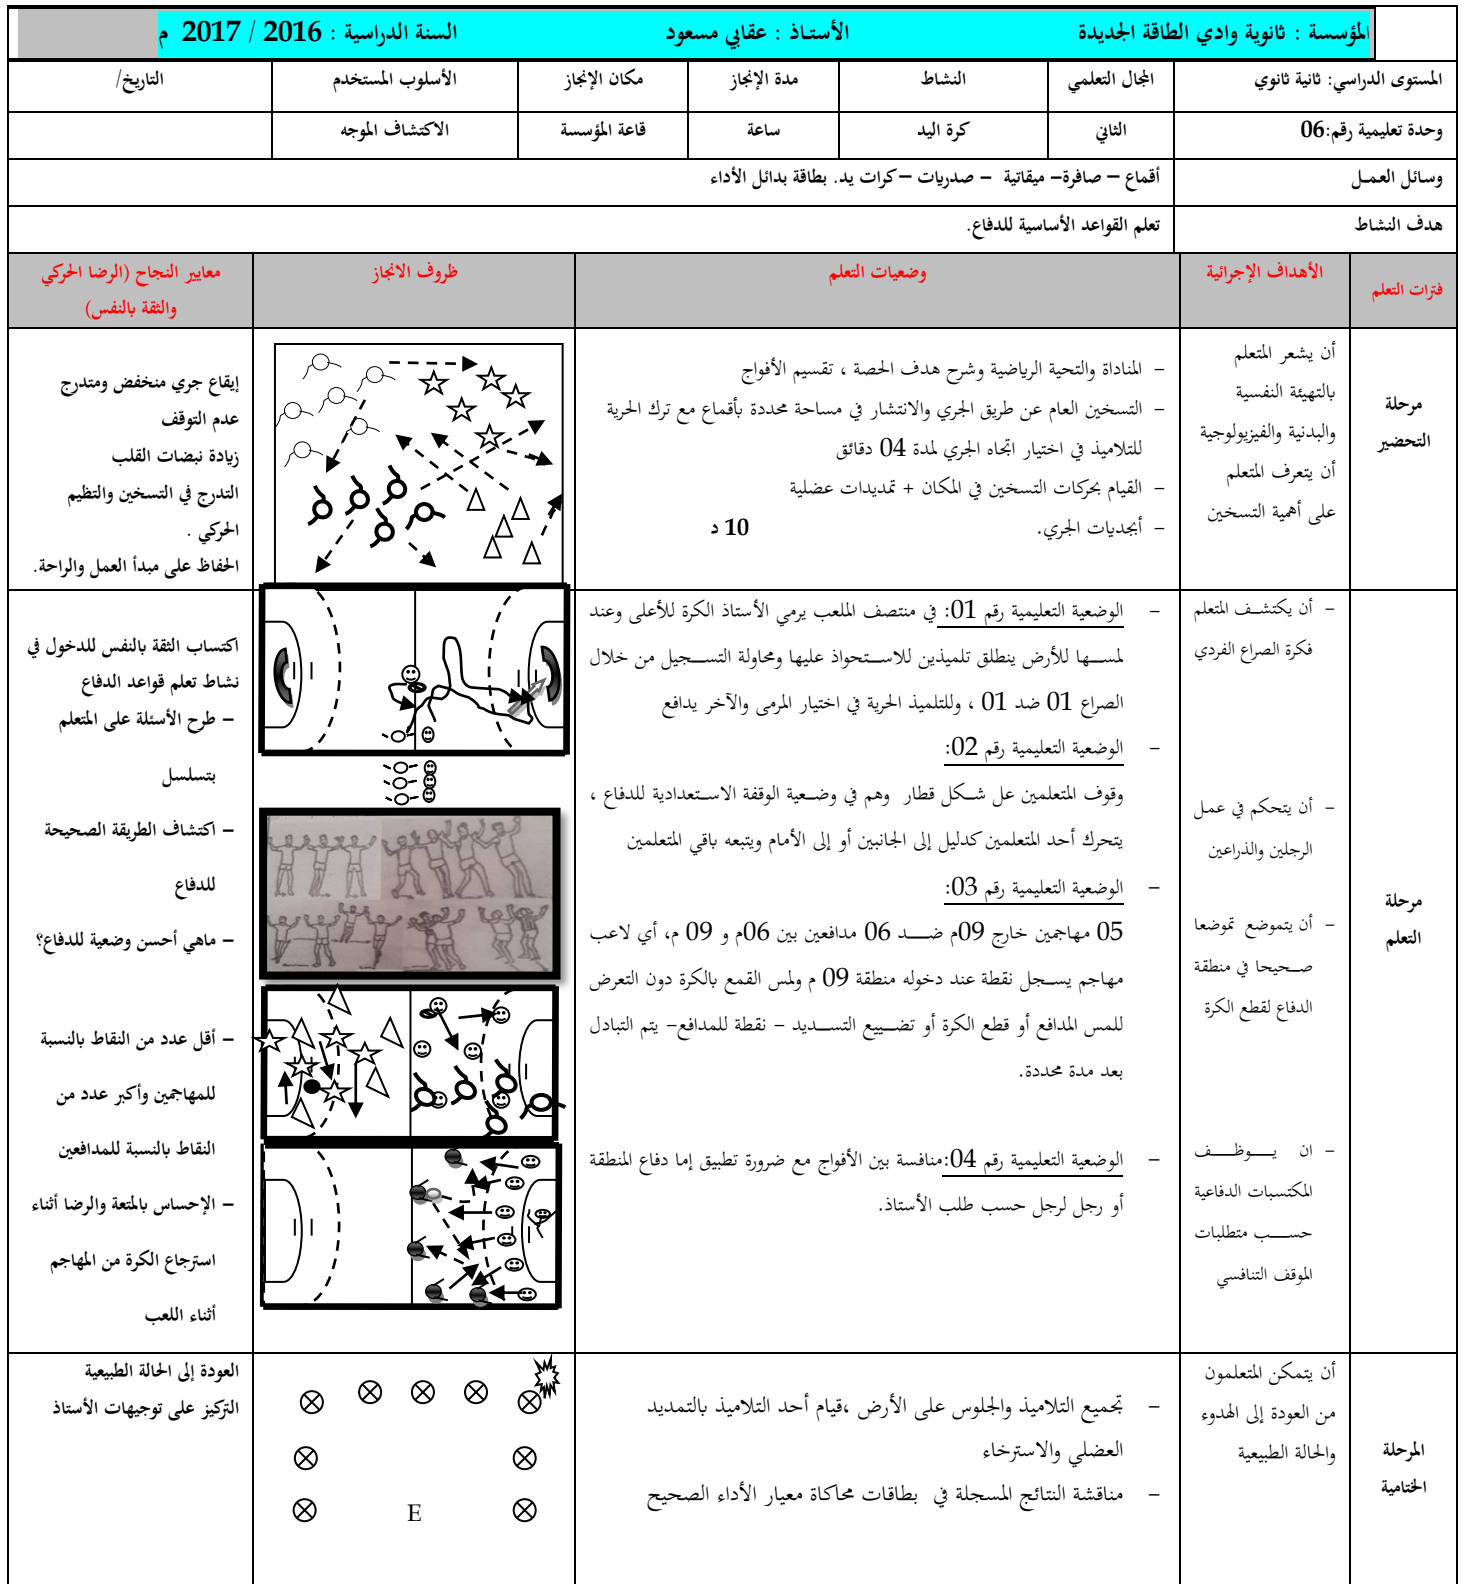 المؤسسة : ثانوية وادي الطاقة الجديدة الأستاذ : عقابي مسعود السنة الدراسية : 2016 / 2017 م
المستوى الدراسي: ثانية ثانوي المجال التعلمي النشاط مدة الإنجاز مكان الإنجاز الأسلوب المستخدم التاريخ/
وحدة تعليمية رقم:06 الثاني كرة اليد ساعة قاعة المؤسسة الاكتشاف الموجه
وسائل العمل أقماع – صافرة– ميقاتية – صدريات –كرات يد. بطاقة بدائل الأداء
هدف النشاط تعلم القواعد الأساسية للدفاع.
فترات التعلم الأهداف الإجرائية وضعيات التعلم ظروف الانجاز معايير النجاح (الرضا الحركي
والثقة بالنفس)
مرحلة
التحضير
أن يشعر المتعلم
بالتهيئة النفسية
والبدنية والفيزيولوجية
أن يتعرف المتعلم
على أهمية التسخين
– المناداة والتحية الرياضية وشرح هدف الحصة ، تقسيم الأفواج
– التسخين العام عن طريق الجري والانتشار في مساحة محددة بأقماع مع ترك الحرية
للتلاميذ في اختيار اتجاه الجري لمدة 04 دقائق
– القيام بحركات التسخين في المكان + تمديدات عضلية
– أبجديات الجري. 10 د
إيقاع جري منخفض ومتدرج
عدم التوقف
زيادة نبضات القلب
التدرج في التسخين والتظيم
الحركي .
الحفاظ على مبدأ العمل والراحة.
مرحلة
التعلم
– أن يكتشف المتعلم
فكرة الصراع الفردي
– أن يتحكم في عمل
الرجلين والذراعين
– أن يتموضع تموضعا
صحيحا في منطقة
الدفاع لقطع الكرة
– ان يوظف
المكتسبات الدفاعية
حسب متطلبات
الموقف التنافسي
– الوضعية التعليمية رقم 01: في منتصف الملعب يرمي الأستاذ الكرة للأعلى وعند
لمسها للأرض ينطلق تلميذين للاستحواذ عليها ومحاولة التسجيل من خلال
الصراع 01 ضد 01 ، وللتلميذ الحرية في اختيار المرمى والآخر يدافع
– الوضعية التعليمية رقم 02:
وقوف المتعلمين عل شكل قطار وهم في وضعية الوقفة الاستعدادية للدفاع ،
يتحرك أحد المتعلمين كدليل إلى الجانبين أو إلى الأمام ويتبعه باقي المتعلمين
– الوضعية التعليمية رقم 03:
05 مهاجمين خارج 09م ضد 06 مدافعين بين 06م و 09 م، أي لاعب
مهاجم يسجل نقطة عند دخوله منطقة 09 م ولمس القمع بالكرة دون التعرض
للمس المدافع أو قطع الكرة أو تضييع التسديد – نقطة للمدافع– يتم التبادل
بعد مدة محددة.
– الوضعية التعليمية رقم 04:منافسة بين الأفواج مع ضرورة تطبيق إما دفاع المنطقة
أو رجل لرجل حسب طلب الأستاذ.
اكتساب الثقة بالنفس للدخول في
نشاط تعلم قواعد الدفاع
– طرح الأسئلة على المتعلم
بتسلسل
– اكتشاف الطريقة الصحيحة
للدفاع
– ماهي أحسن وضعية للدفاع؟
– أقل عدد من النقاط بالنسبة
للمهاجمين وأكبر عدد من
النقاط بالنسبة للمدافعين
– الإحساس بالمتعة والرضا أثناء
استرجاع الكرة من المهاجم
أثناء اللعب
المرحلة
الختامية
أن يتمكن المتعلمون
من العودة إلى الهدوء
والحالة الطبيعية
– تجميع التلاميذ والجلوس على الأرض ،قيام أحد التلاميذ بالتمديد
العضلي والاسترخاء
– مناقشة النتائج المسجلة في بطاقات محاكاة معيار الأداء الصحيح
E
العودة إلى الحالة الطبيعية
التركيز على توجيهات الأستاذ